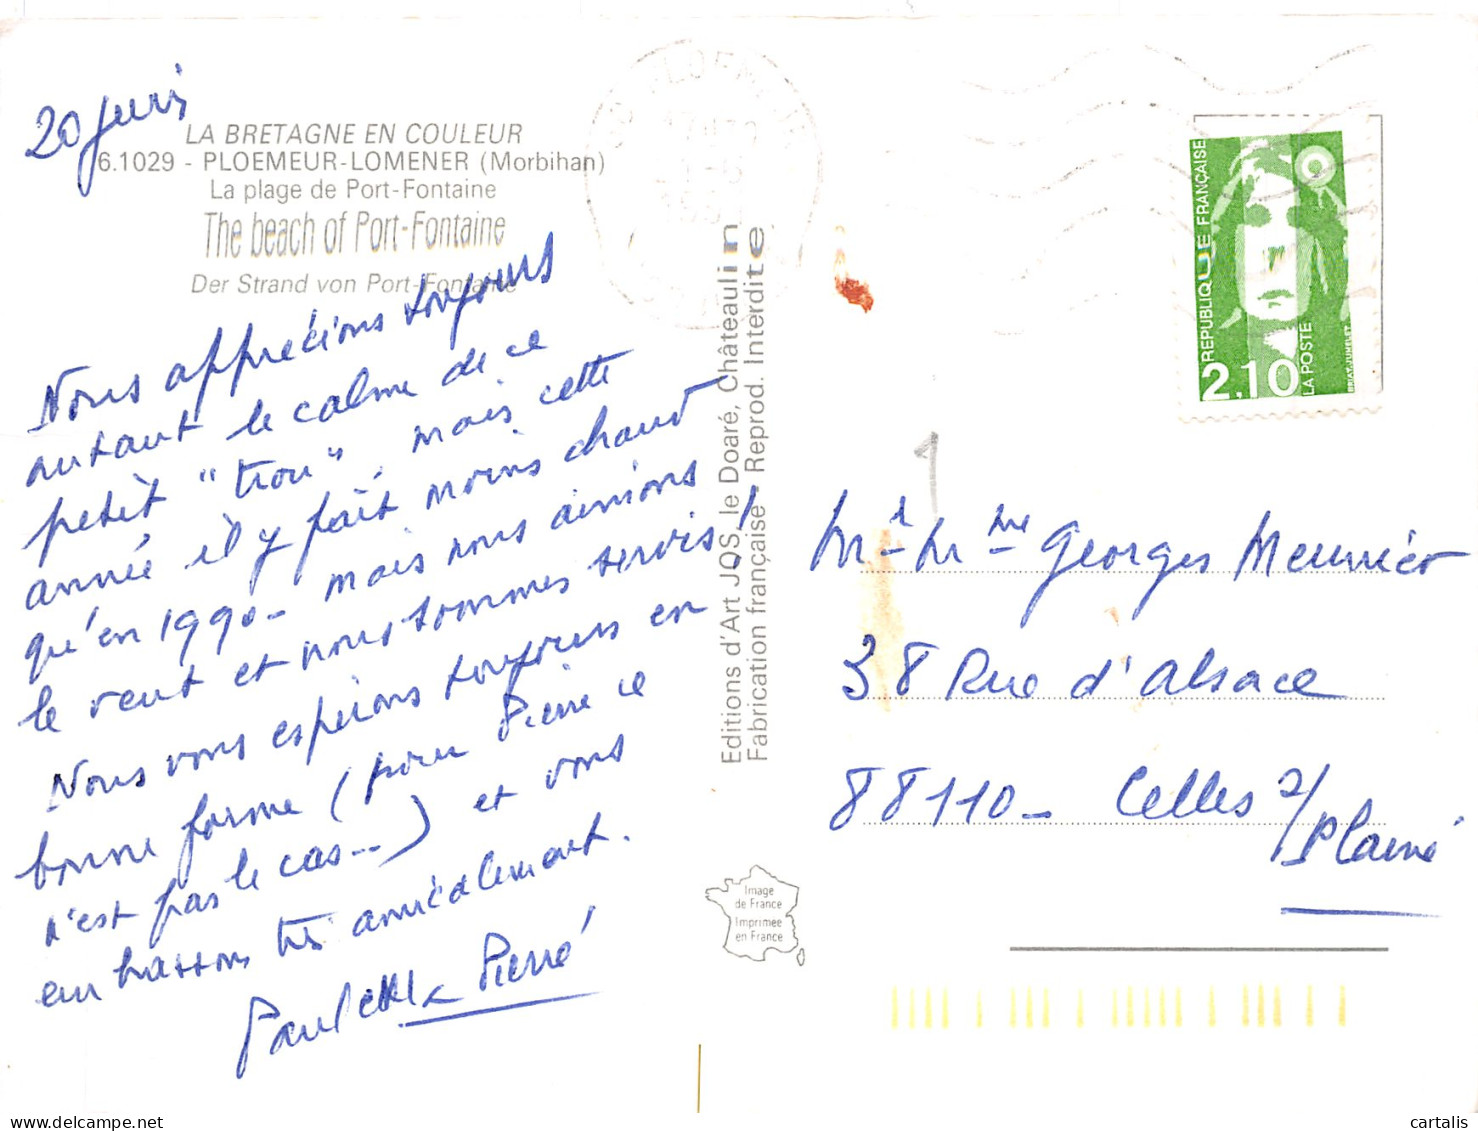 20 juin
LA BRETAGNE EN COULEUR
6.1029 - PLOEMEUR-LOMENER (Morbihan)
La plage de Port-Fontaine
The beach of Port-Fontaine
Der Strand von Port-Fontaine
Nous apprécions toujours
autant le calme de ce
petit "trou", mais cette
année il y fait moins chaud
qu'en 1990 - mais nous aimions
le vent et nous sommes servis !
Nous vous espérons toujours en
bonne forme (pour Pierre ce
n'est pas le cas...) et vous
embrassons très amicalement.
Paulette & Pierre
Editions d'Art JOS, le Doaré, Châteaulin
Fabrication française - Reprod. Interdite
Image
de France
Imprimée
en France
REPUBLIQUE FRANÇAISE
2,10
LA POSTE
1
Mr - Mme Georges Meunier
38 Rue d'Alsace
88110 - Celles s/
Plaine
cartalis.com